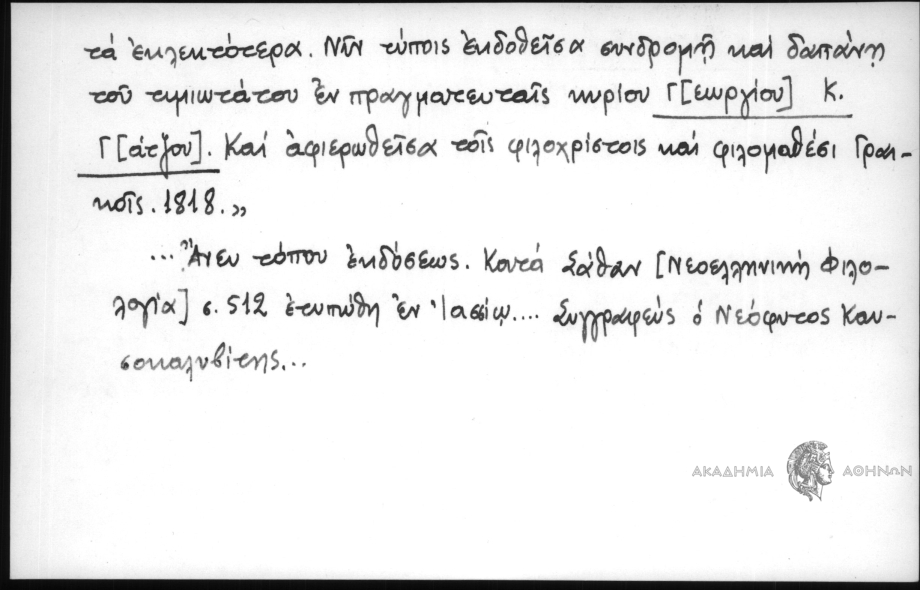 τά ἐκλεκτότερα. Νῦν τύποις ἐκδοθεῖσα συνδρομῇ καί δαπάνῃ
τοῦ τιμιωτάτου ἐν πραγματευταῖς κυρίου Γ[εωργίου] Κ.
Γ[άτζου]. Καί ἀφιερωθεῖσα τοῖς φιλοχρίστοις καί φιλομαθέσι Γραι-
κοῖς. 1818.»
...Ἄνευ τόπου ἐκδόσεως. Κατά Σάθαν [Νεοελληνική Φιλο-
λογία] σ. 512 ἐτυπώθη ἐν Ἰασσίῳ.... Συγγραφεύς ὁ Νεόφυτος Καυ-
σοκαλυβίτης...
ΑΚΑΔΗΜΙΑ ΑΘΗΝΩΝ